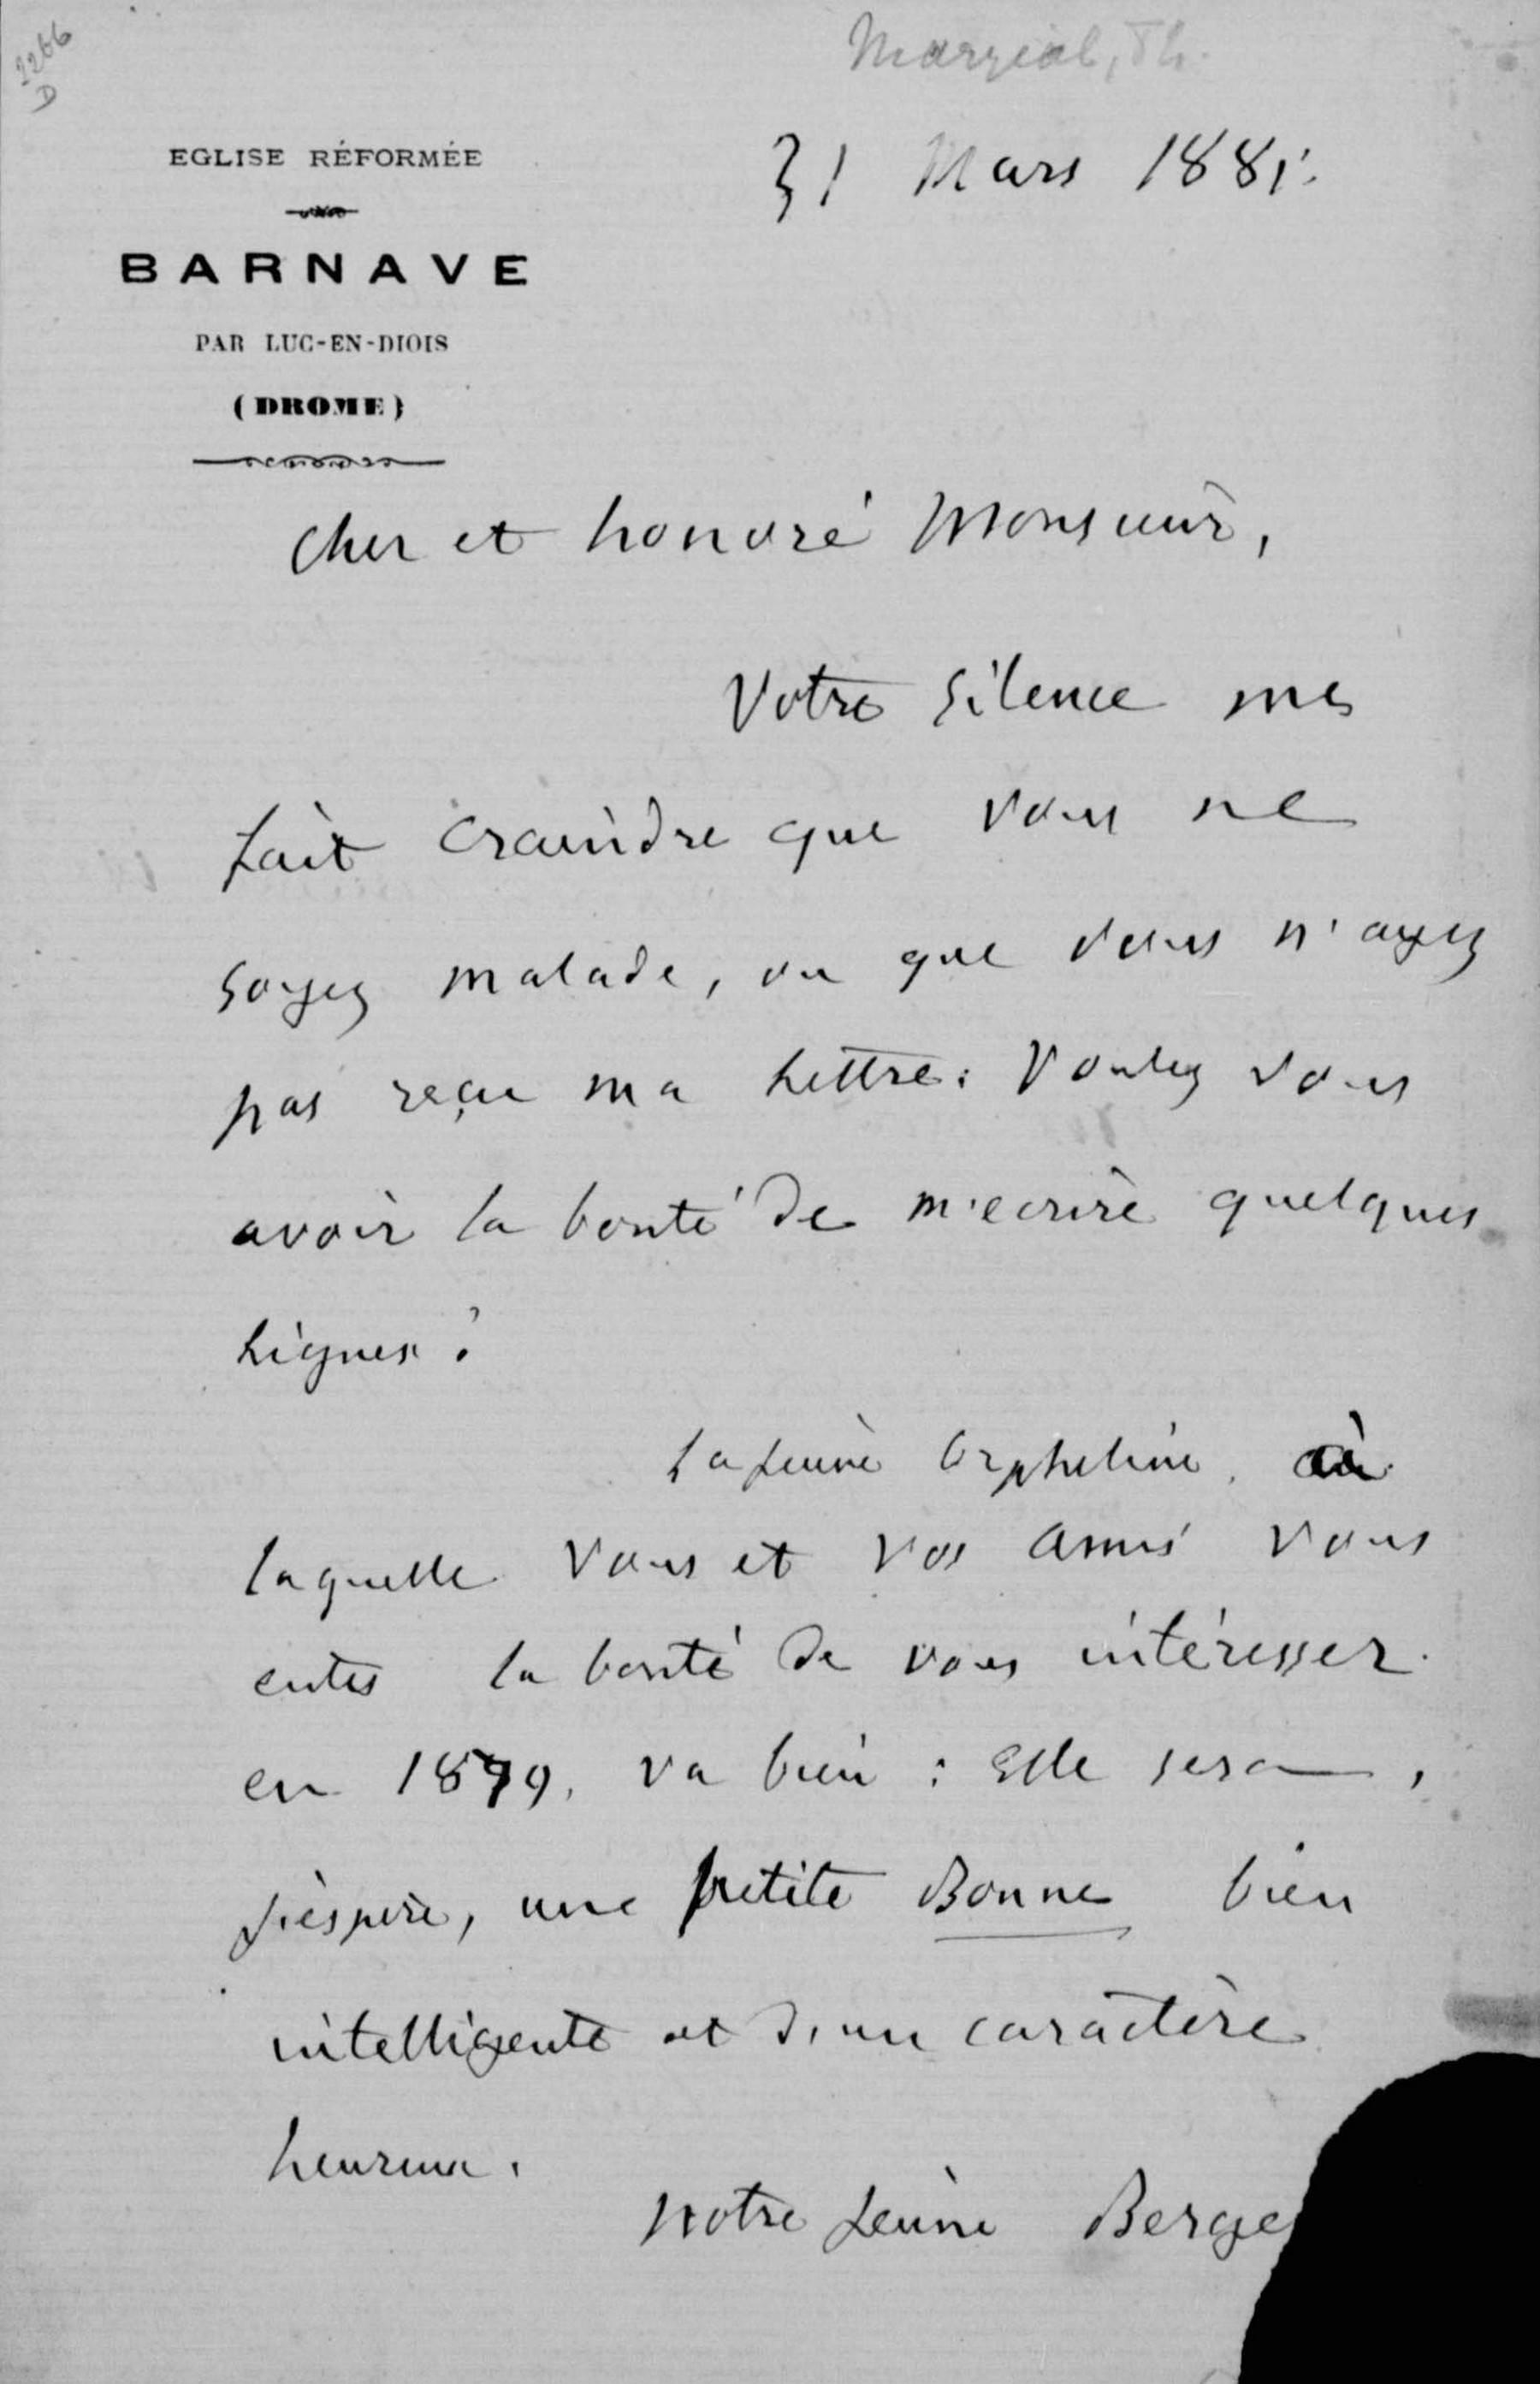 2266
D
Marzial, Th.
EGLISE RÉFORMÉE
31 Mars 1881.
BARNAVE
PAR LUC-EN-DIOIS
(DROME)
Cher et honoré Monsieur,
Votre Silence me
fait craindre que vous ne
soyez malade, ou que vous n'ayez
pas reçu ma Lettre: Voulez vous
avoir la bonté de m'ecrire quelques
Lignes?
La jeune Orpheline, à
laquelle vous et vos amis vous
eutes la bonté de vous intéresser
en 1879, va bien : Elle sera,
j'espère, une petite Bonne bien
intelligente et d'un caractère
heureux.
Notre jeune Berge